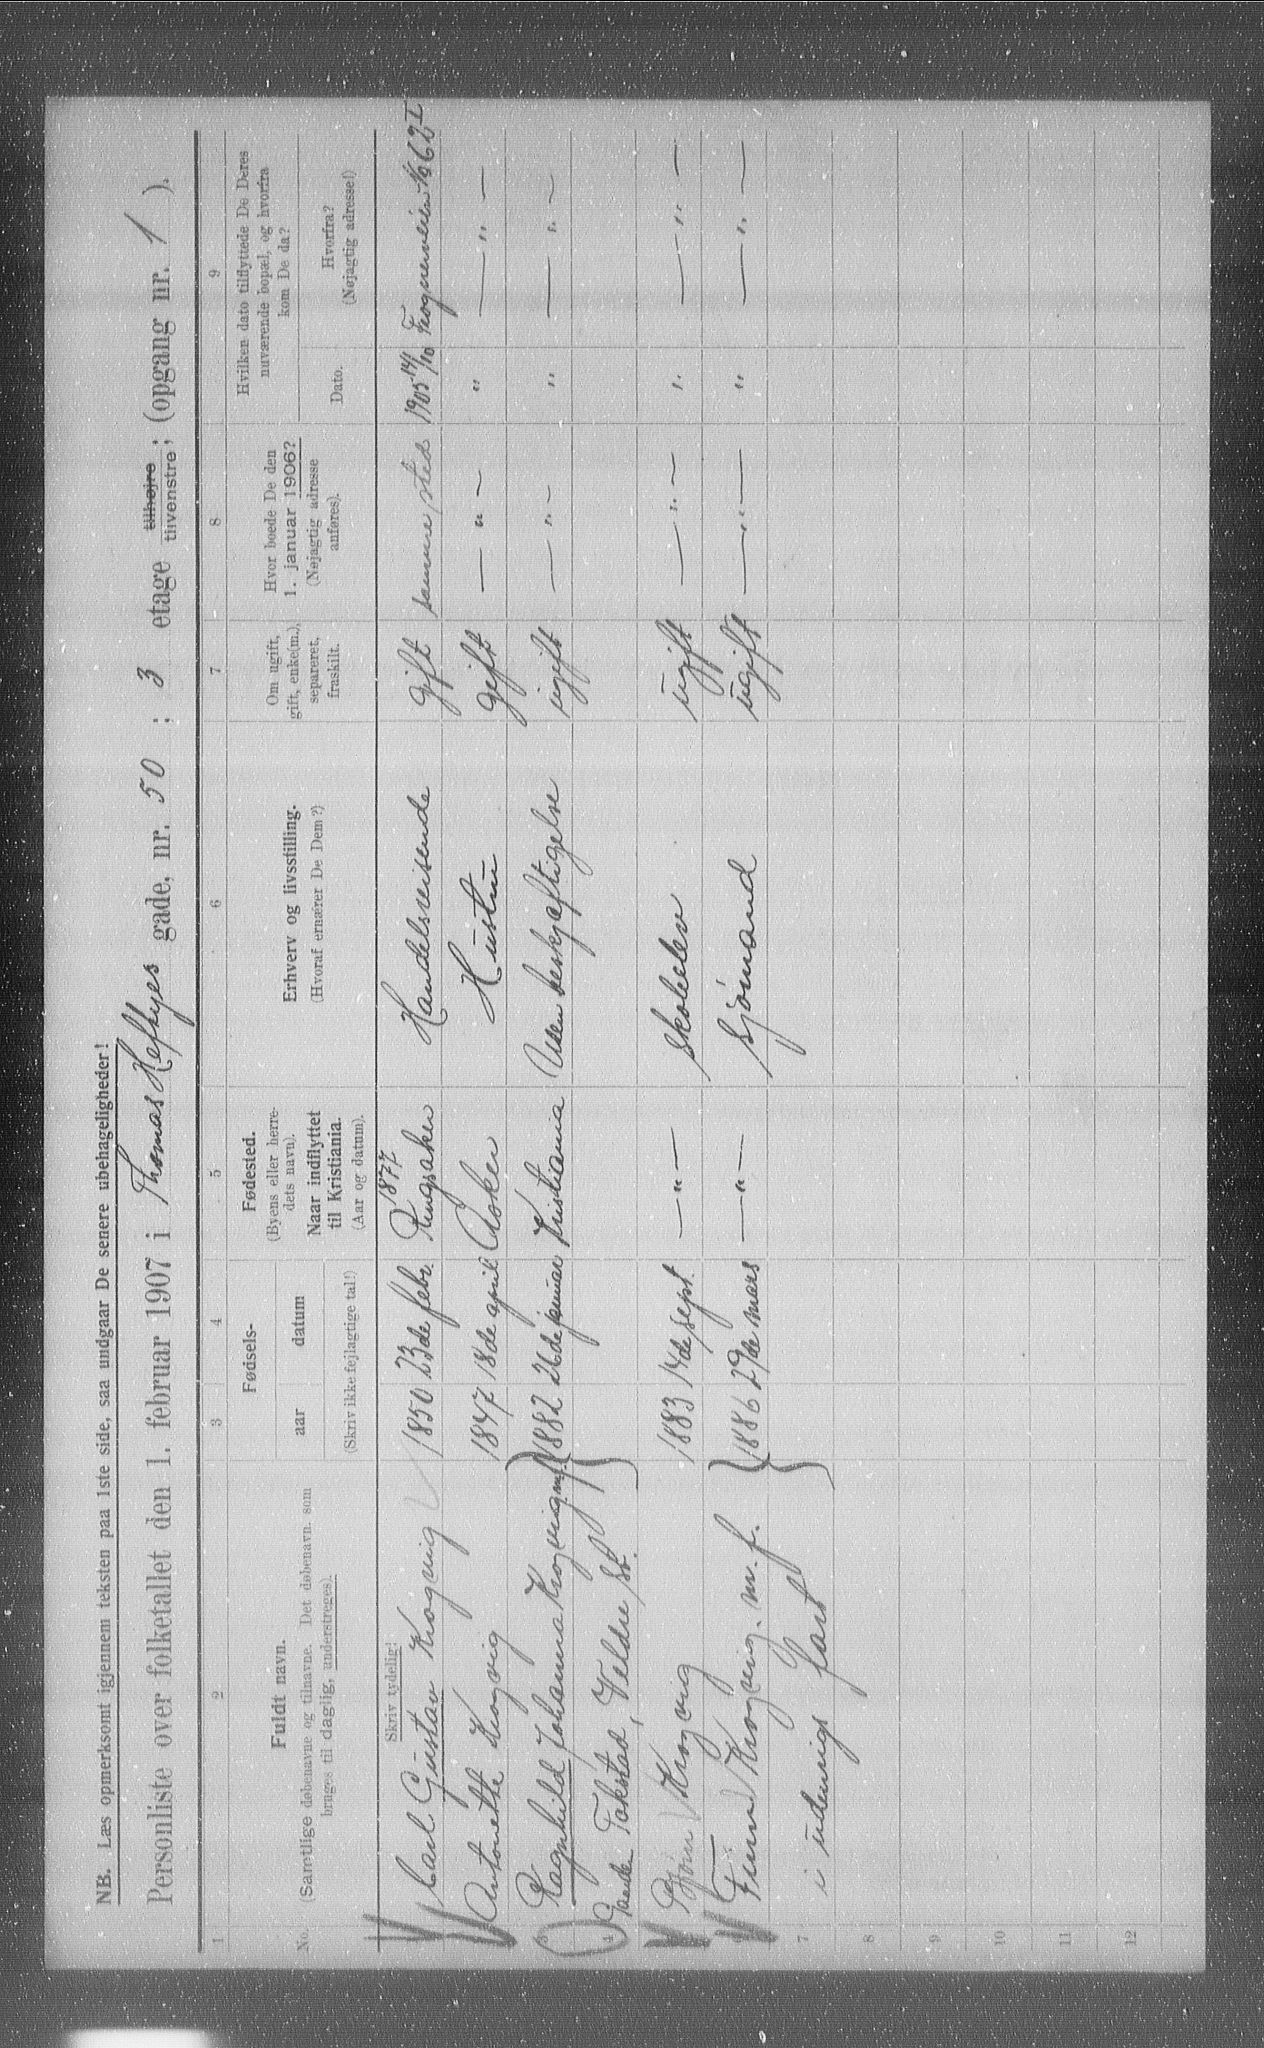 NB. Læs opmerksomt igjennem teksten paa 1ste side, saa undgaar De senere ubehageligheder!
Personliste over folketallet den 1. februar 1907 i Thomas Heftyes gade, nr. 50 ; 3 etage tilhøjre tilvenstre; (opgang nr. 1 ).
1 2 3 4 5 6 7 8 9
No.
Fuldt navn.
(Samtlige døbenavne og tilnavne. Det døbenavn, som
bruges til daglig, understreges).
Skriv tydelig!
Fødsels-
aar datum
(Skriv ikke fejlagtige tal!)
Fødested.
(Byens eller herre-
dets navn).
Naar indflyttet
til Kristiania.
(Aar og datum).
Erhverv og livsstilling.
(Hvoraf ernærer De Dem?)
Om ugift,
gift, enke(m.),
separeret,
fraskilt.
Hvor boede De den
1. januar 1906?
(Nøjagtig adresse
anføres).
Hvilken dato tilflyttede De Deres
nuværende bopæl, og hvorfra
kom De da?
Dato.
Hvorfra?
(Nøjagtig adresse!)
1877
Carl Gustav Krogvig 1850 23de febr. Ringsaker Handelsreisende gift samme sted 1905 14/10 Frognerveien 62 I
Antonette Krogvig 1847 18de april Asker Hustru gift — " — " — " —
3 Ragnhild Johanna Krogvig m.f. 1882 26de januar Kristiania Uden beskjæftigelse ugift — " — " — " —
4 Tokstad, Veldre st.
Bjørn Krogvig 1883 14de sept. — " — skoleelev ugift — " — " — " —
6 Finn Krogvig. m. f. 1886 29de mars — " — sjømand ugift — " — " — " —
7 i udenrigs fart
8
9
10
11
12